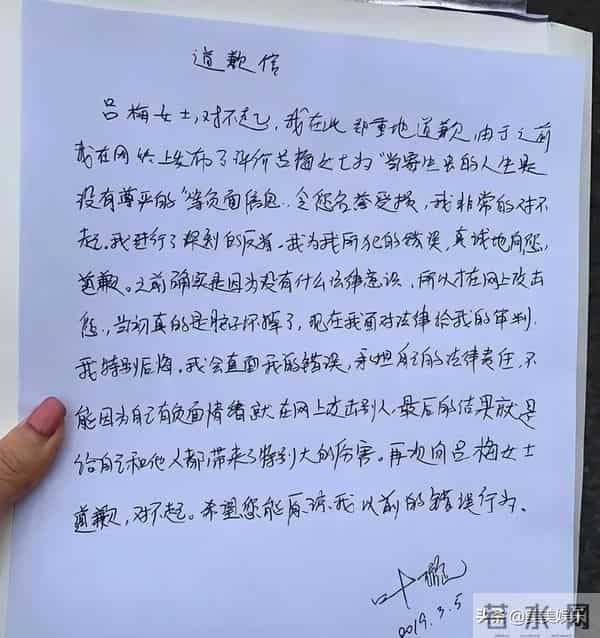 道歉信
吕梅女士，对不起，我在此郑重地道歉，由于之前
我在网络上发布了评价吕梅女士为“当寄生虫的人生是
没有尊严的”等负面信息，令您名誉受损，我非常的对不
起。我进行了深刻的反省。我为我所犯的错误，真诚地向您，
道歉。之前确实是因为没有什么法律意识，所以才在网上攻击
您，当初真的是脑子坏掉了，现在我面对法律给我的审判，
我特别后悔。我会直面我的错误，承担自己的法律责任，不
能因为自己有负面情绪就在网上攻击别人，最后的结果就是
给自己和他人都带来了特别大的伤害。再次向吕梅女士
道歉，对不起。希望您能原谅我以前的错误行为。
叶璇
2019.3.5
头条
娱乐
若水网